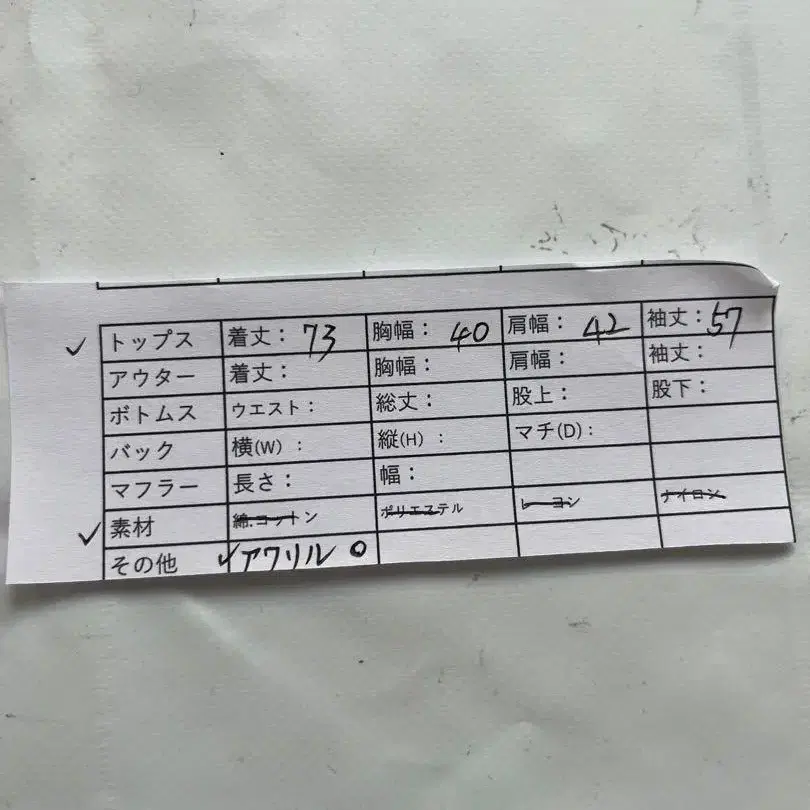 ✓ トップス 着丈： 73 胸幅： 40 肩幅： 42 袖丈： 57
アウター 着丈： 胸幅： 肩幅： 袖丈：
ボトムス ウエスト： 総丈： 股上： 股下：
バック 横(W) ： 縦(H) ： マチ(D)：
マフラー 長さ： 幅：
✓ 素材 綿.コットン ポリエステル レーヨン ナイロン
その他 ✓アクリル ○